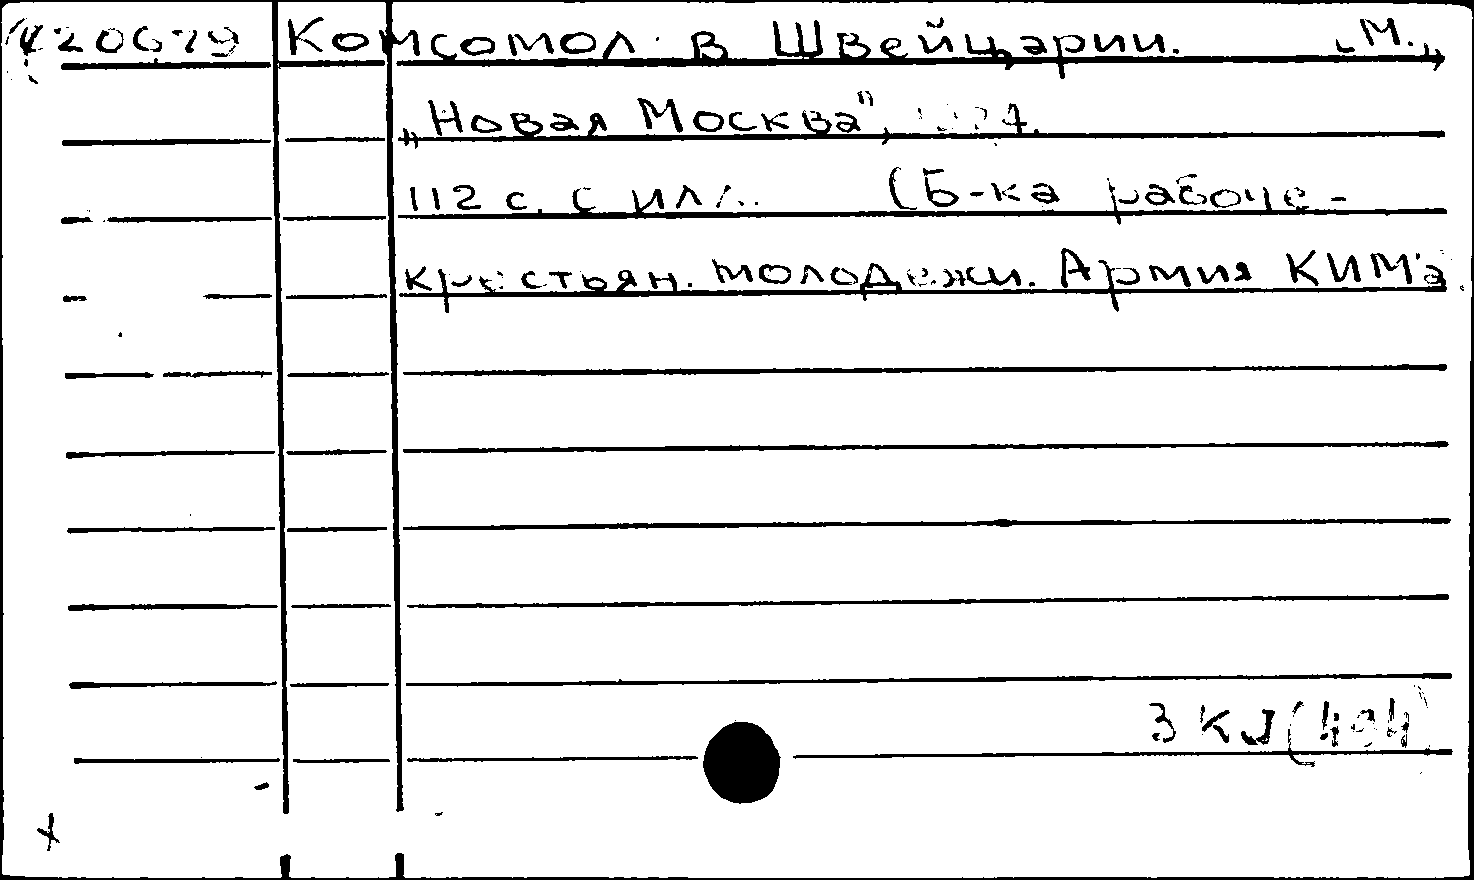 420679 Комсомол в Швейцарии. „М.„
„Новая Москва",
112 с. с илл. (Б-ка рабоче-
крестьян. молодежи. Армия КИМ'а
3 КJ (494)
x